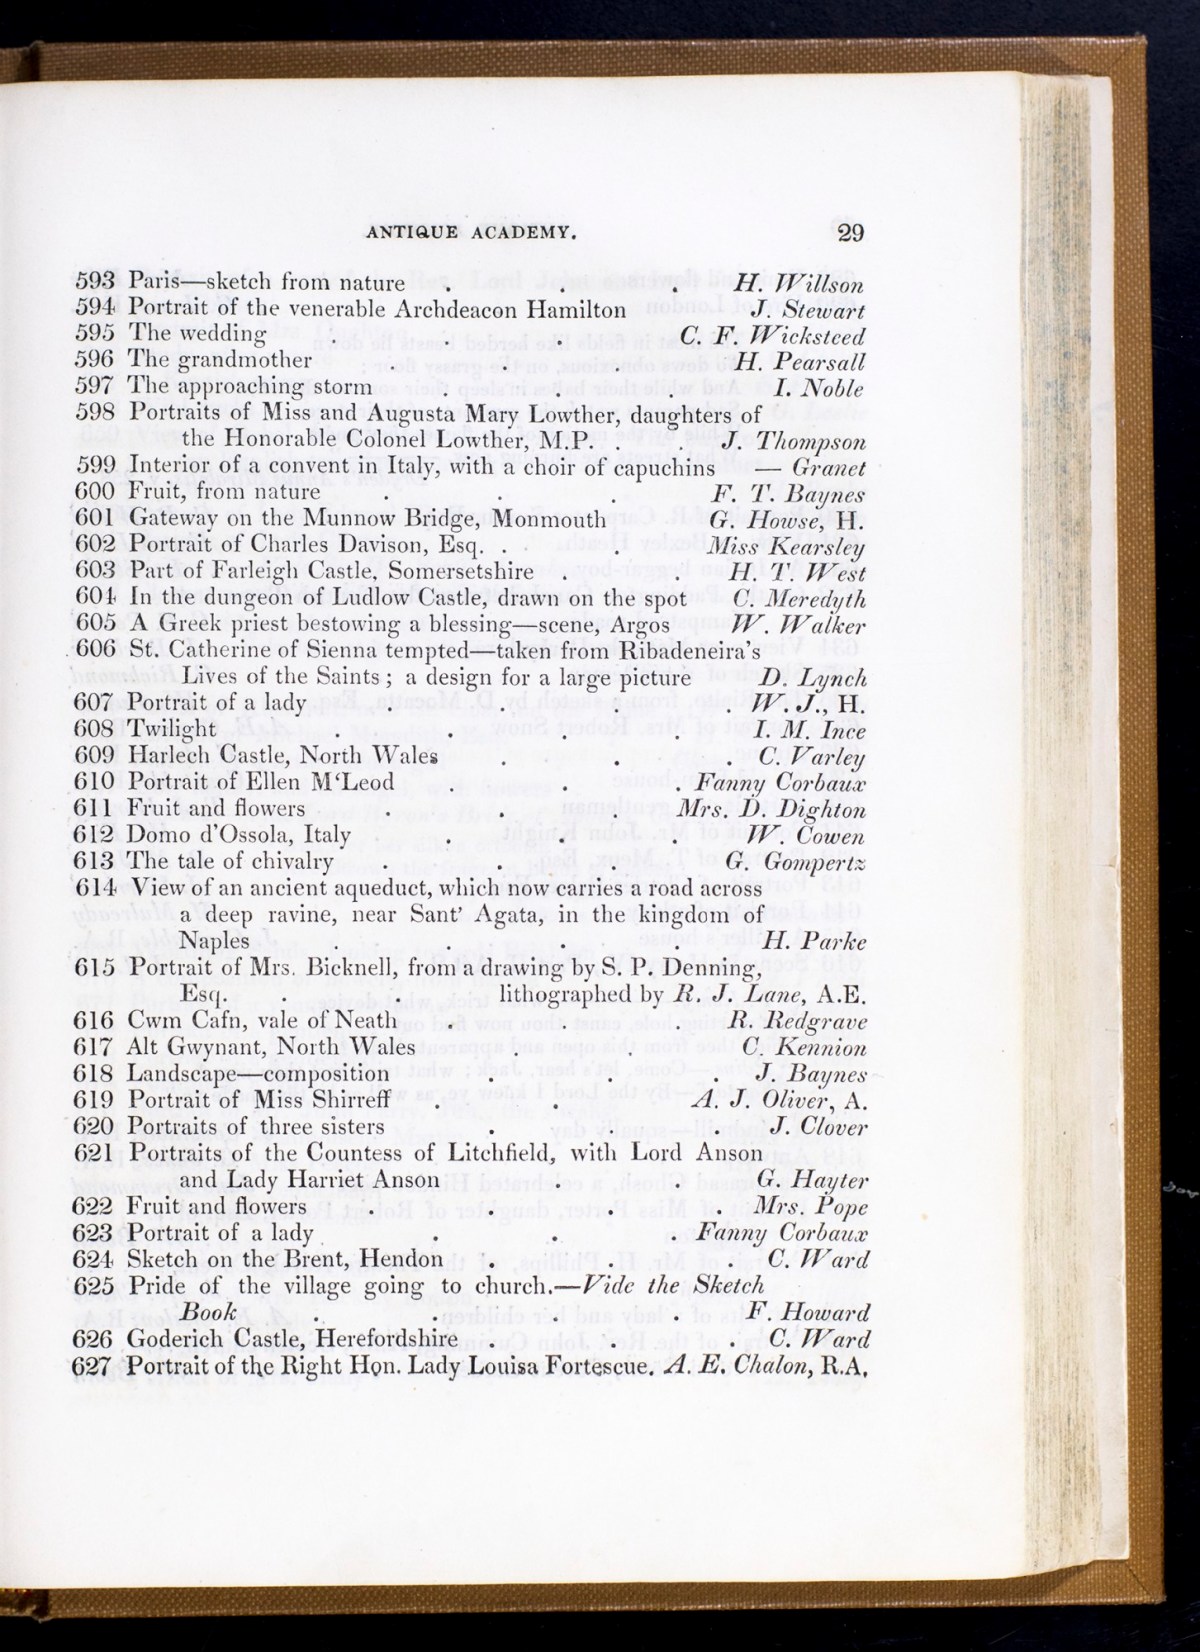 ANTIQUE ACADEMY. 29
593 Paris—sketch from nature . . . H. Willson
594 Portrait of the venerable Archdeacon Hamilton J. Stewart
595 The wedding . . . C. F. Wicksteed
596 The grandmother . . . H. Pearsall
597 The approaching storm . . . I. Noble
598 Portraits of Miss and Augusta Mary Lowther, daughters of
the Honorable Colonel Lowther, M.P. . . J. Thompson
599 Interior of a convent in Italy, with a choir of capuchins — Granet
600 Fruit, from nature . . . F. T. Baynes
601 Gateway on the Munnow Bridge, Monmouth G. Howse, H.
602 Portrait of Charles Davison, Esq. . . Miss Kearsley
603 Part of Farleigh Castle, Somersetshire . . H. T. West
604 In the dungeon of Ludlow Castle, drawn on the spot C. Meredyth
605 A Greek priest bestowing a blessing—scene, Argos W. Walker
606 St. Catherine of Sienna tempted—taken from Ribadeneira's
Lives of the Saints; a design for a large picture D. Lynch
607 Portrait of a lady . . . . W. J., H.
608 Twilight . . . . I. M. Ince
609 Harlech Castle, North Wales . . . C. Varley
610 Portrait of Ellen M'Leod . . . Fanny Corbaux
611 Fruit and flowers . . . Mrs. D. Dighton
612 Domo d'Ossola, Italy . . . W. Cowen
613 The tale of chivalry . . . G. Gompertz
614 View of an ancient aqueduct, which now carries a road across
a deep ravine, near Sant' Agata, in the kingdom of
Naples . . . H. Parke
615 Portrait of Mrs. Bicknell, from a drawing by S. P. Denning,
Esq. . . lithographed by R. J. Lane, A.E.
616 Cwm Cafn, vale of Neath . . . R. Redgrave
617 Alt Gwynant, North Wales . . C. Kennion
618 Landscape—composition . . . J. Baynes
619 Portrait of Miss Shirreff . . A. J. Oliver, A.
620 Portraits of three sisters . . . J. Clover
621 Portraits of the Countess of Litchfield, with Lord Anson
and Lady Harriet Anson . . G. Hayter
622 Fruit and flowers . . . . Mrs. Pope
623 Portrait of a lady . . . Fanny Corbaux
624 Sketch on the Brent, Hendon . . . C. Ward
625 Pride of the village going to church.—Vide the Sketch
Book . . . . F. Howard
626 Goderich Castle, Herefordshire . . . C. Ward
627 Portrait of the Right Hon. Lady Louisa Fortescue. A. E. Chalon, R.A.